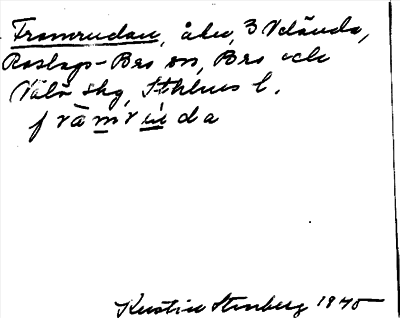 Framrudan, åker, 3 Velånda,
Roslags-Bro sn, Bro och
Väls skg, Sthlms l.
frāmrùda
Kerstin Stenberg 1945